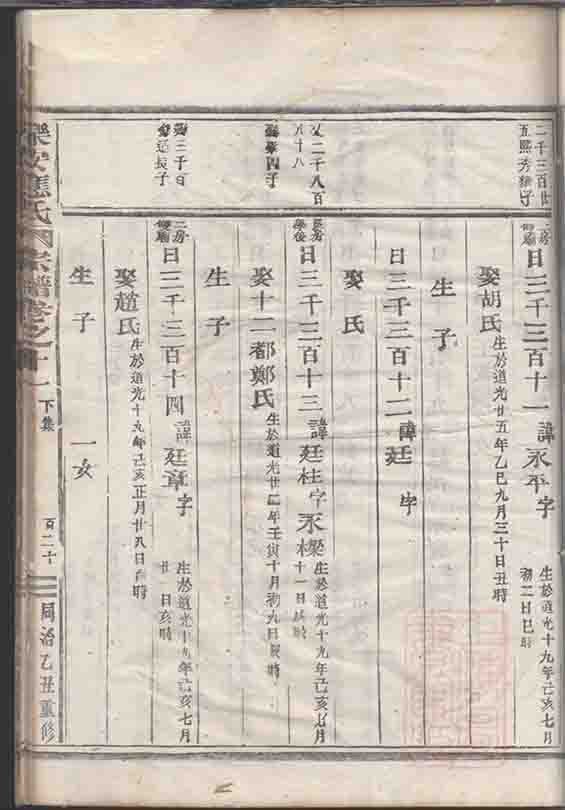 二千三百廿
五熙秀雅子
二房
日三千三百十一諱永平字
生於道光十九年己亥七月
初二日巳時
娶胡氏生於道光廿五年乙巳九月三十日丑時
生子
日三千三百十二諱廷字
娶氏
二千八百
八十八
日三千三百十三諱廷柱字永樑
生於道光十九年己亥七月
十一日亥時
四子
娶十二都鄭氏生於道光廿二年壬寅十月初九日辰時
生子
三千百
長子
二房
日三千三百十四諱廷章字
生於道光十九年己亥七月
廿一日亥時
娶趙氏生於道光十九年己亥正月廿八日時
生子 一女
樂安應氏宗譜卷之十一
下集
百二十
同治乙丑重修